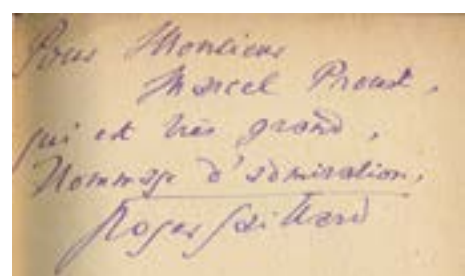 Pour Monsieur
Marcel Proust,
qui est très grand,
Hommage d'admiration,
Roger Gaillard